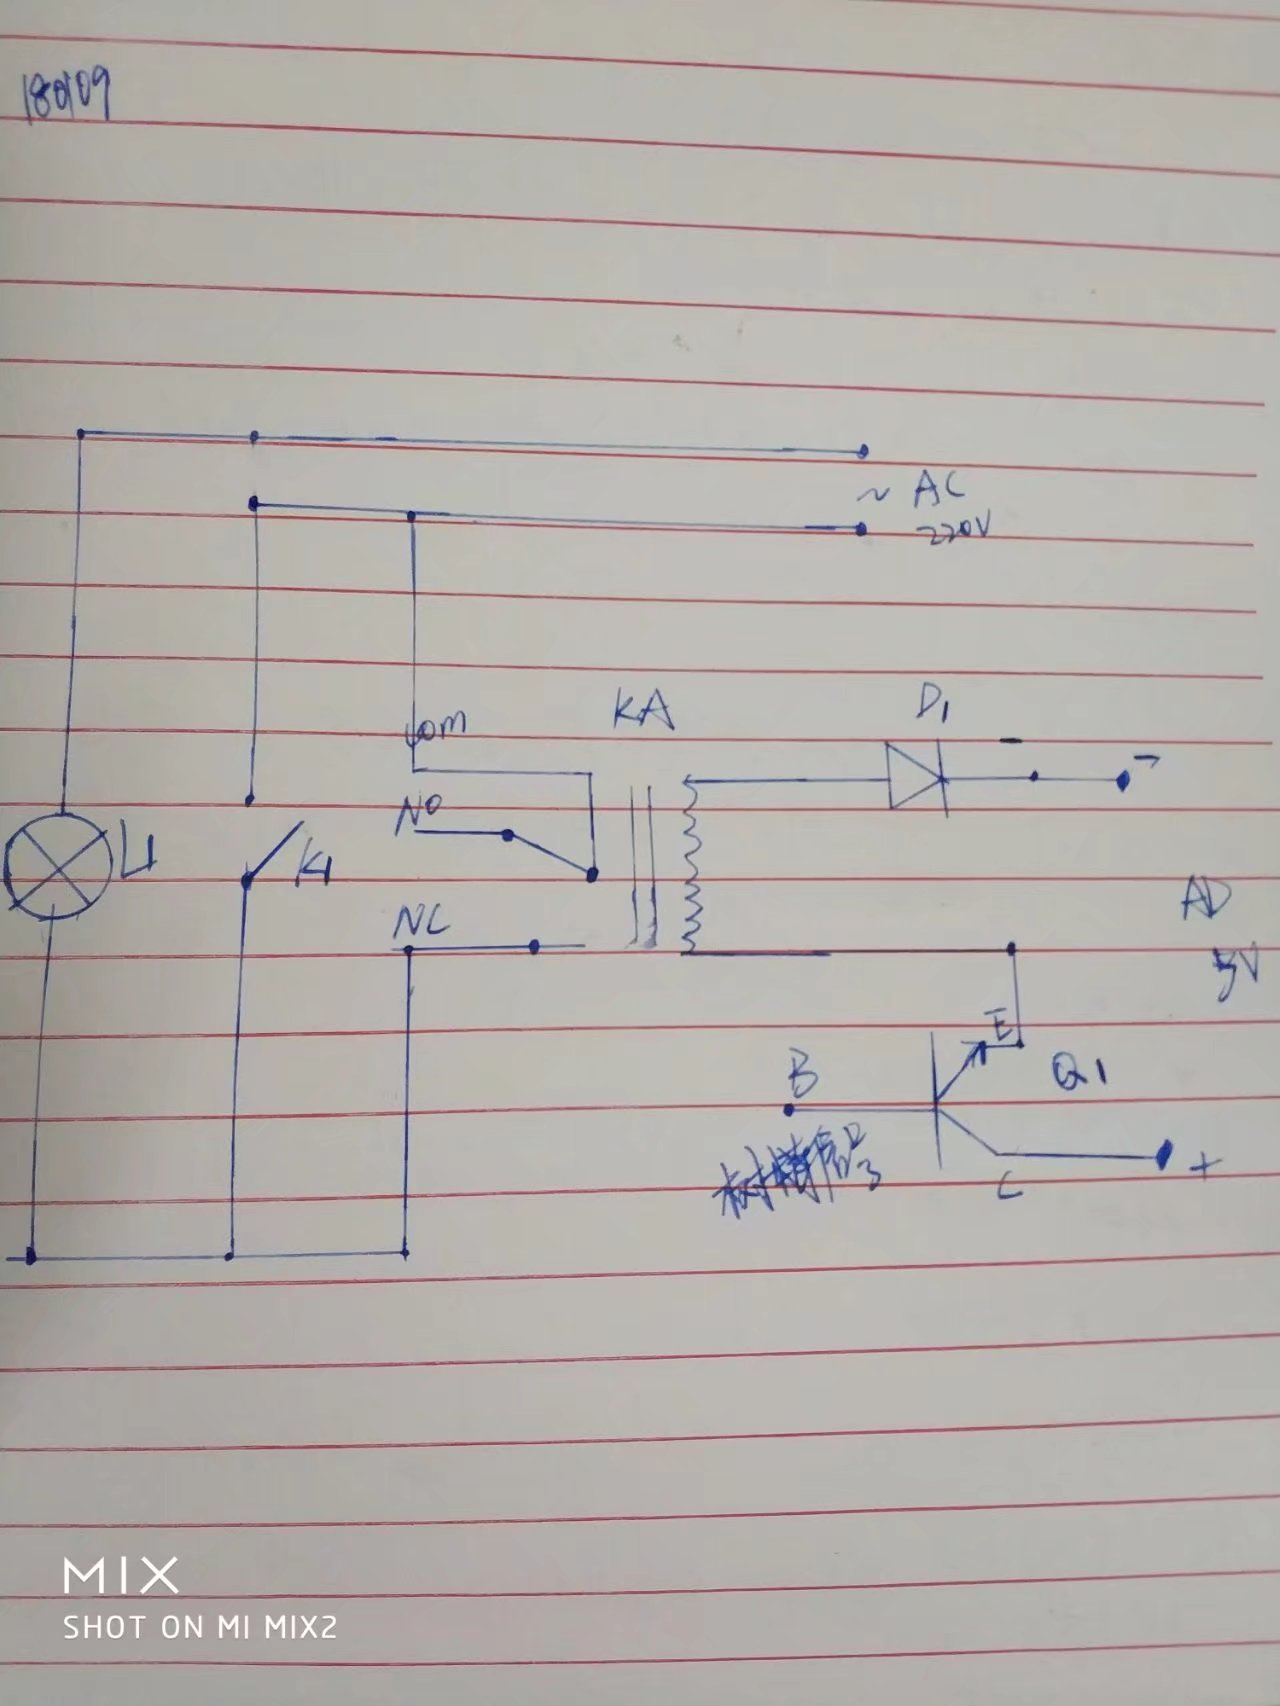 180109
~ AC
220V
com
KA
D1
-
-
NO
L1
K1
NC
AD
5V
E
B
Q1
树莓信号
C
+
MIX
SHOT ON MI MIX2